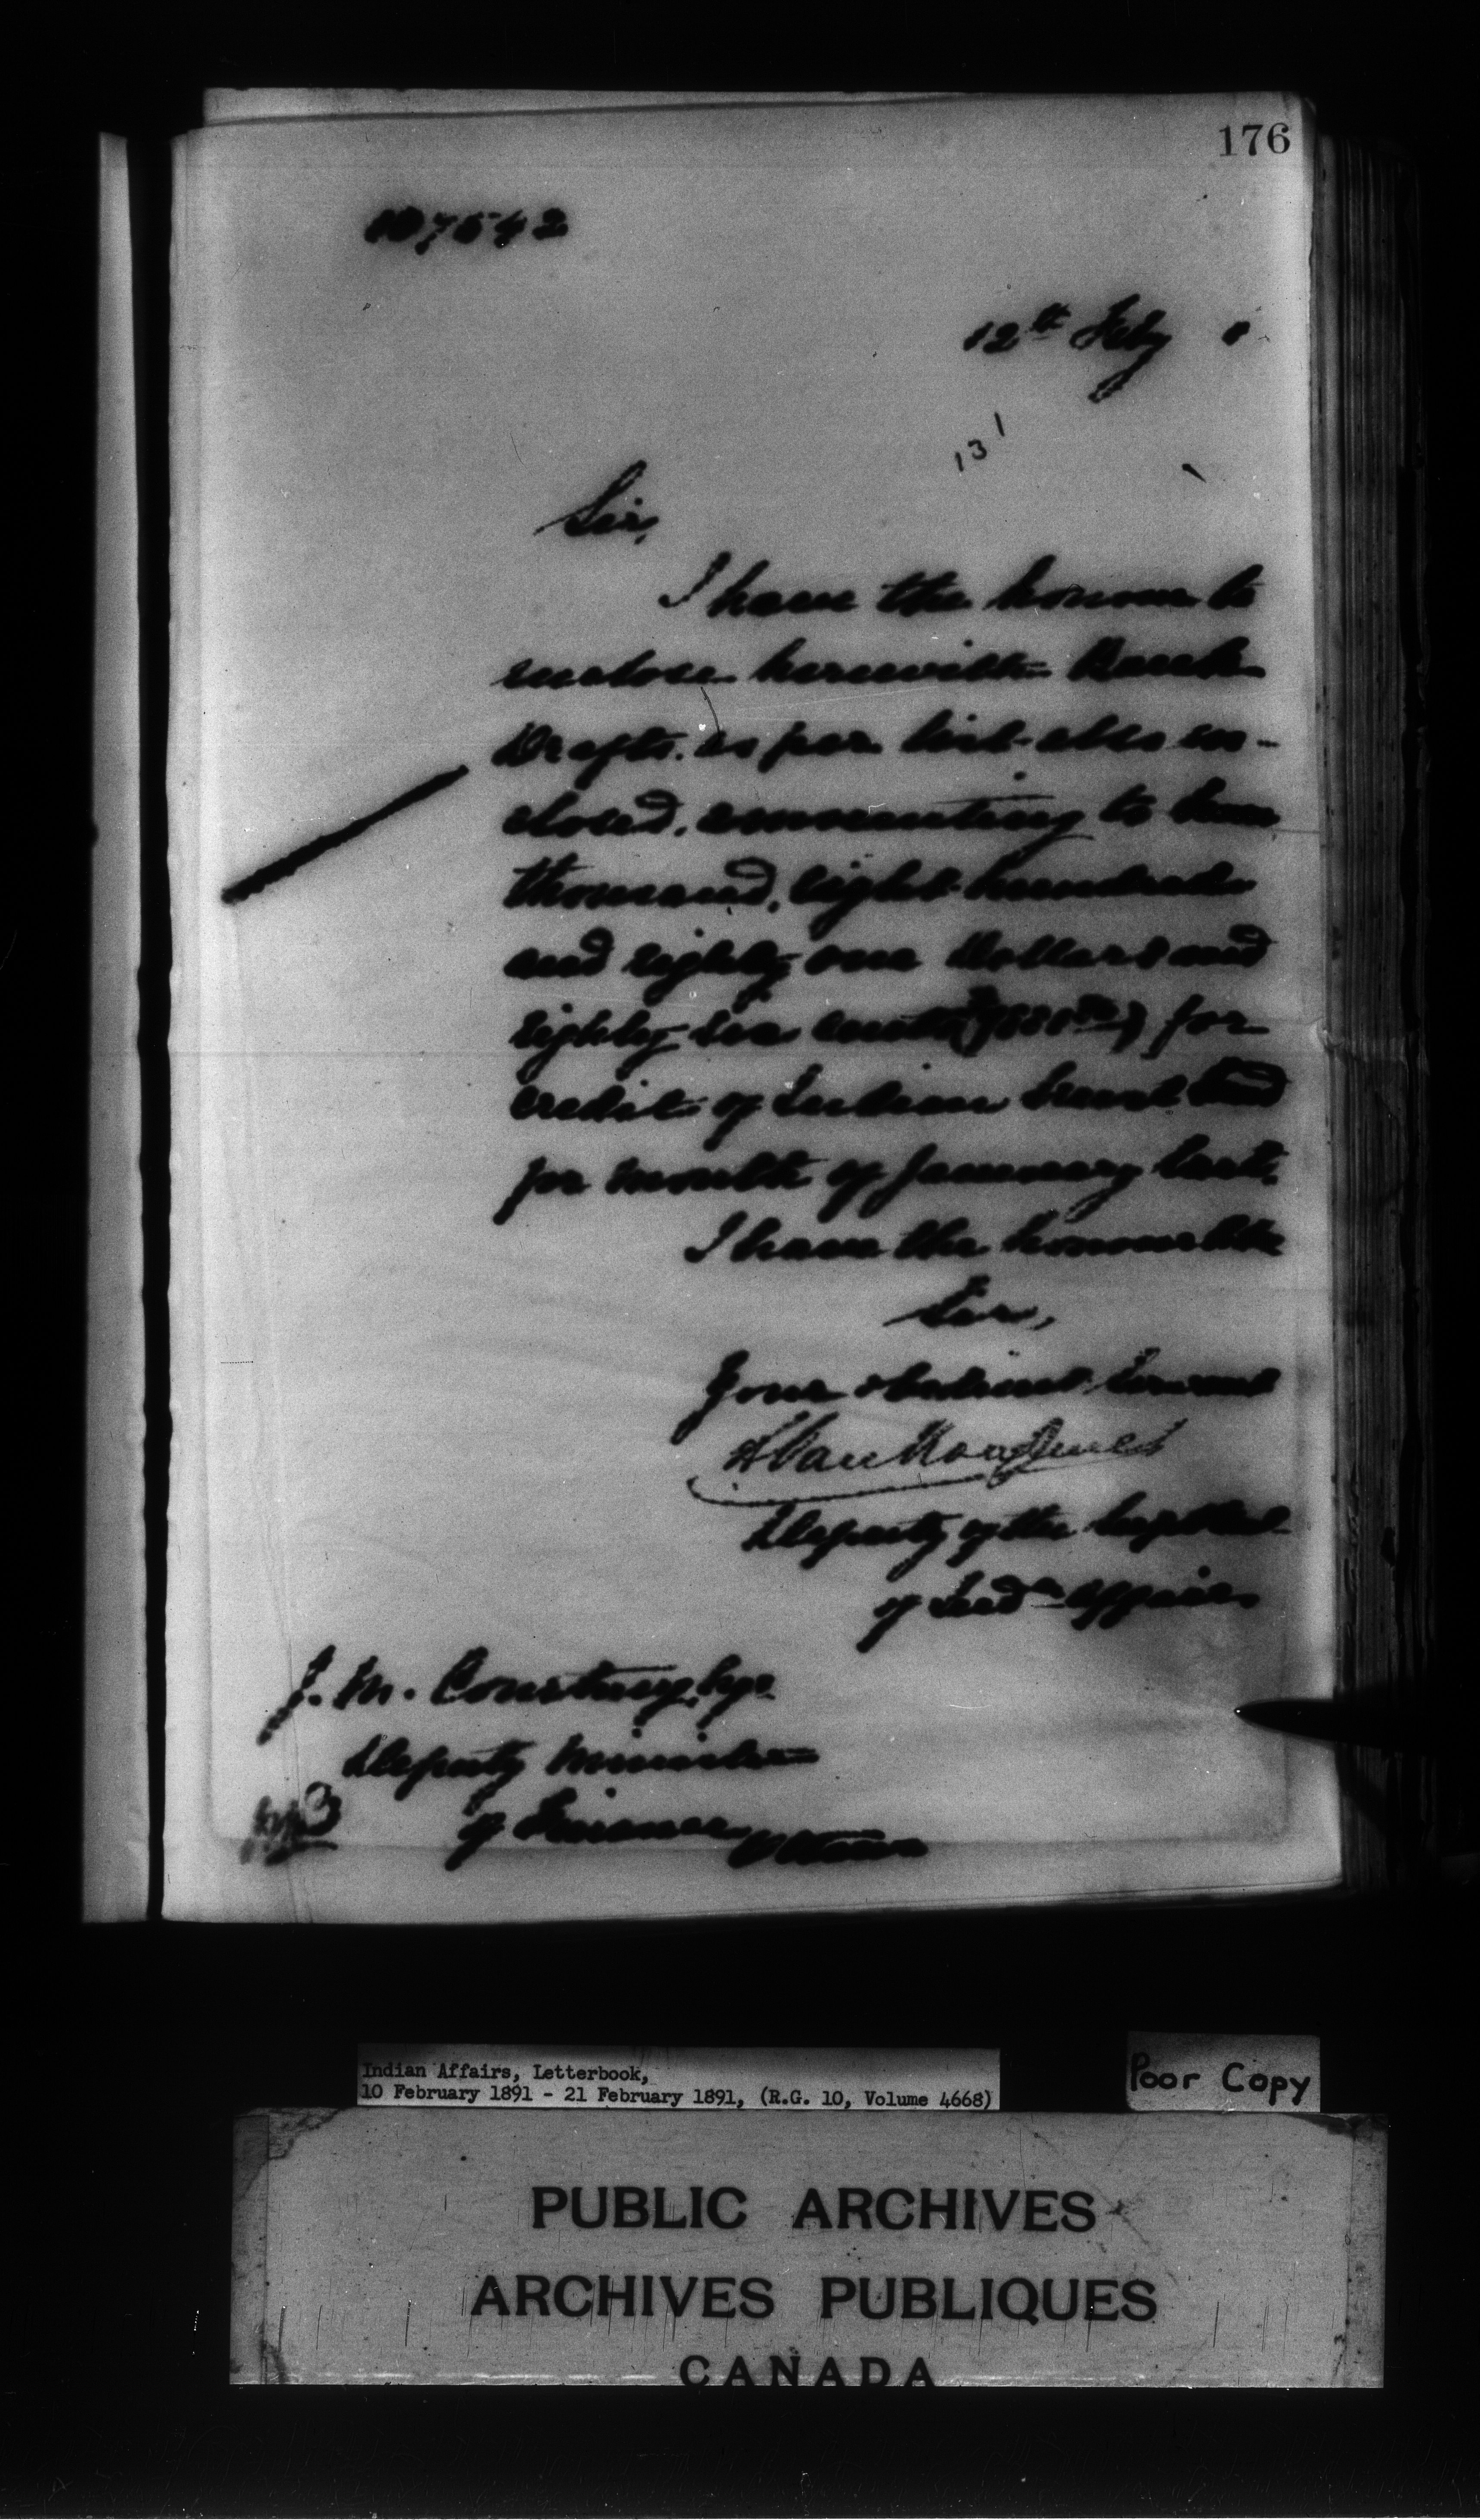 176
107542
12th Feby 1
131
Sir,
I have the honour to
enclose herewith Bank
Drafts. as per list also en-
closed, amounting to
thousand, eight hundred
and eighty one Dollars and
Eighty six cents for
credit of Indian Trust Fund
for month of January last.
I have the honour to be
Sir,
Your obedient Servant
L VanKoughnet
Deputy of the Supt Genl
of Indn Affairs
J. M. Courtney, Esqr
Deputy Minister
of Finance
Ottawa
Indian Affairs, Letterbook,
10 February 1891 - 21 February 1891, (R.G. 10, Volume 4668)
Poor Copy
PUBLIC ARCHIVES
ARCHIVES PUBLIQUES
CANADA